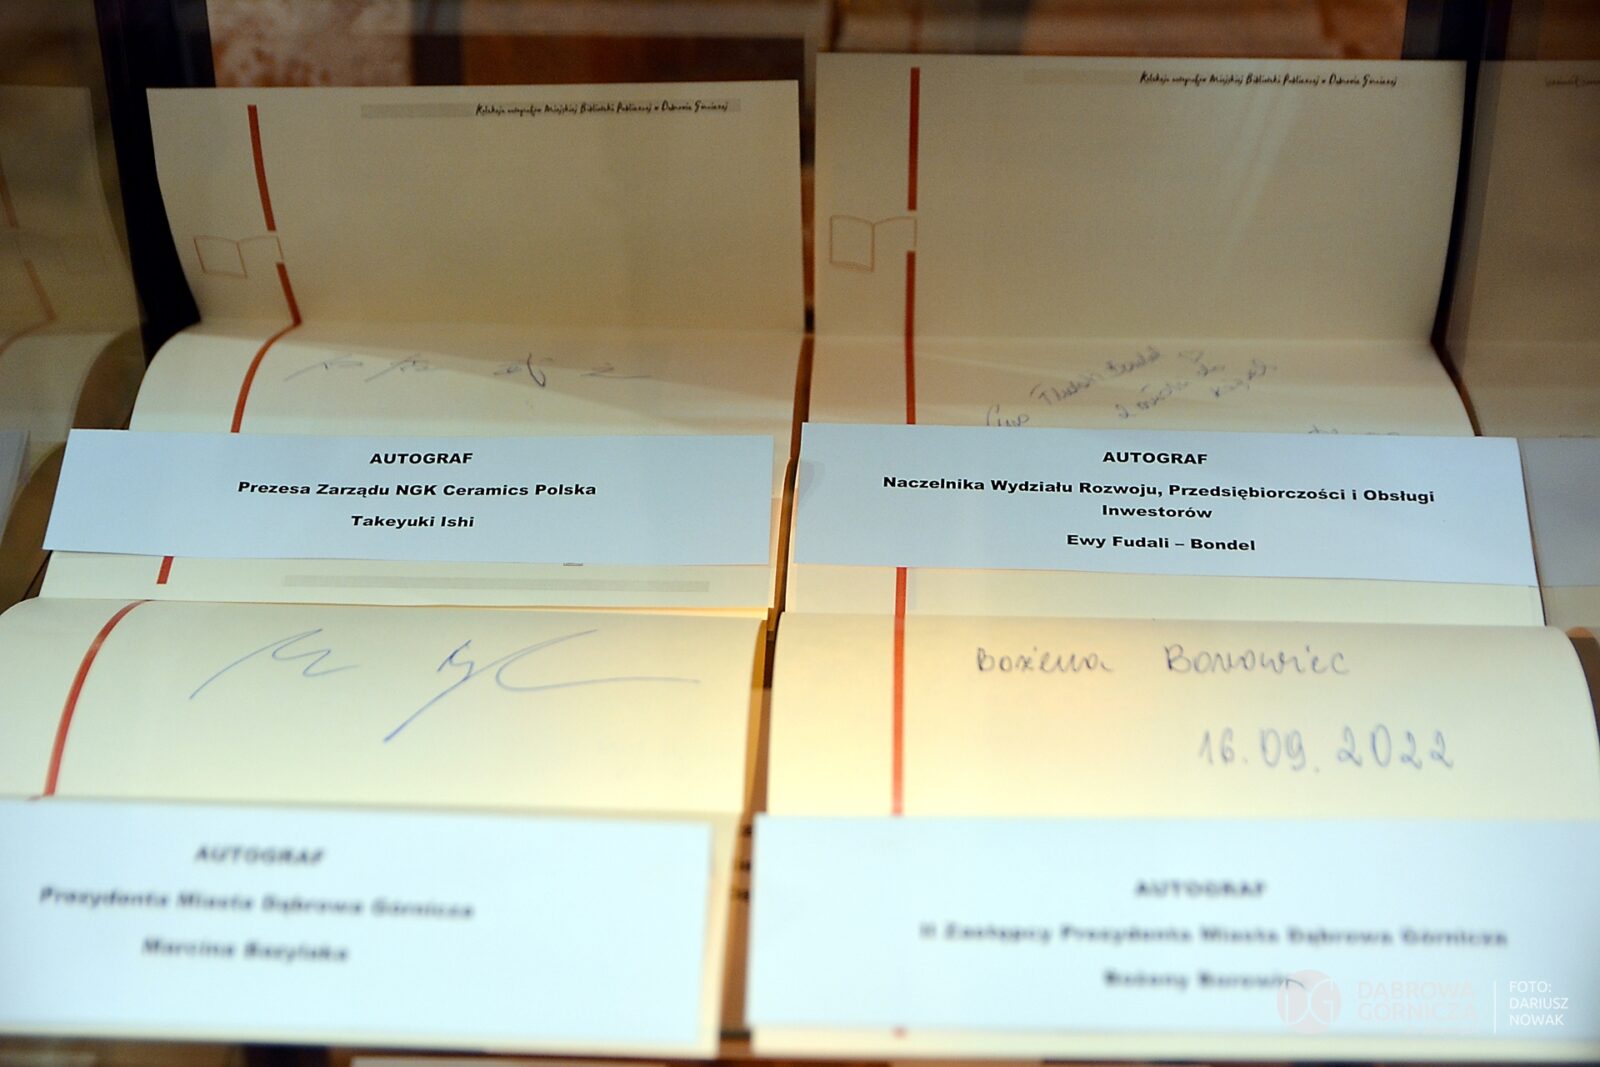 Kolekcja autografów Miejskiej Biblioteki Publicznej w Dąbrowie Górniczej
AUTOGRAF
Prezesa Zarządu NGK Ceramics Polska
Takeyuki Ishi
Kolekcja autografów Miejskiej Biblioteki Publicznej w Dąbrowie Górniczej
Ewa Fudali Bondel
AUTOGRAF
Naczelnika Wydziału Rozwoju, Przedsiębiorczości i Obsługi
Inwestorów
Ewy Fudali – Bondel
AUTOGRAF
Prezydenta Miasta Dąbrowa Górnicza
Marcina Bazylaka
Bożena Borowiec
16.09.2022
AUTOGRAF
II Zastępcy Prezydenta Miasta Dąbrowa Górnicza
Bożeny
DG
DĄBROWA
GÓRNICZA
FOTO:
DARIUSZ
NOWAK